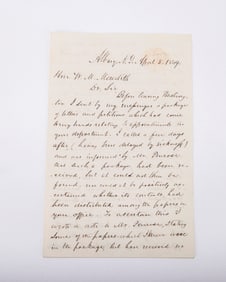 Albany, N.Y. April 5. 1849.
Hon. W. M. Meredith
Dr. Sir
Before leaving Washing-
ton I sent by my messenger a package
of letters and petitions which had come
to my hands relating to appointments in
your department. I called a few days
after (having been delayed by
and was informed by Mr.
no such a package had been re-
ceived, but it could not then be
found, nor could it be positively as-
certained whether its contents had
been distributed among the papers in
your office. To ascertain this I
wrote a note to Mr. stating
some of the papers which I knew were
in the package, but have received no